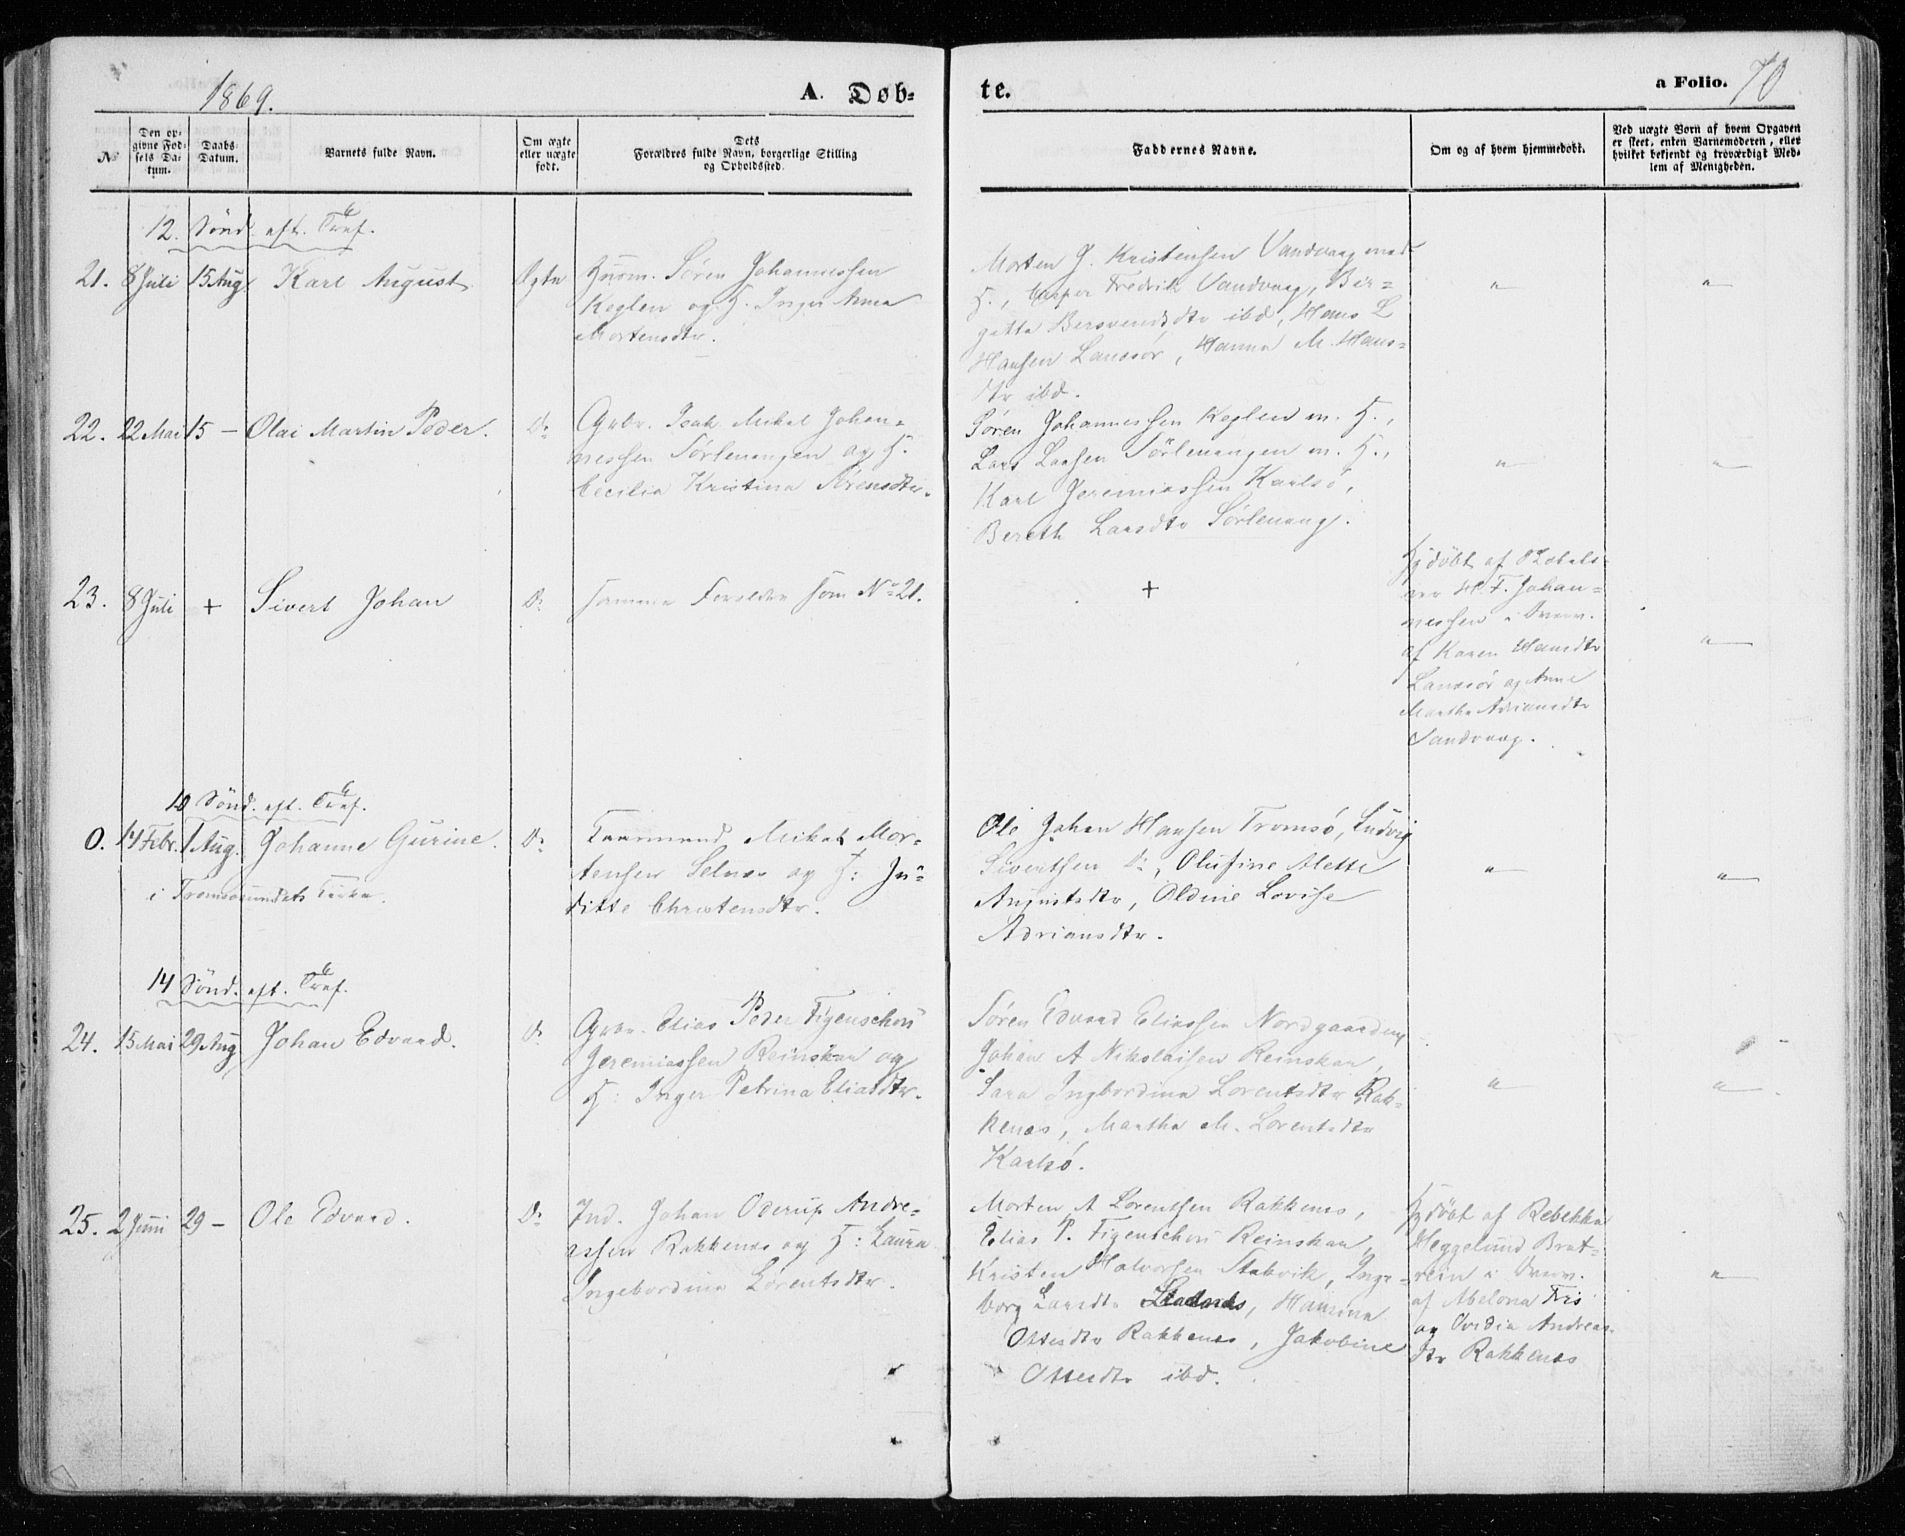 1869.
A. Døb-
te.
a Folio. 70
No
Den op-
givne Fød-
sels Da-
tum.
Daabs-
Datum.
Barnets fulde Navn.
Om ægte
eller uægte
født.
Dets
Forældres fulde Navn, borgerlige Stilling
og Opholdssted.
Faddernes Navne.
Om og af hvem hjemmedøbt.
Ved uægte Born af hvem Opgaven
er skeet, enten Barnemoderen, eller
hvilket bekjendt og troværdigt Med-
lem af Menigheden.
12. Sönd. eft. Tref.
21. 8 Juli 15 Aug Karl August Ægte
Husm. Sören Johannessen
Koglen og H. Inger Anna
Mortensdtr.
Morten J. Kristensen Vandvaag med
H., Casper Fredrik Vandvaag, Bir=
gitte Bersvendsdtr ibd, Hans L
Hansen Lanesör, Hanna M. Hans=
dtr ibd.
" "
22. 22 Mai 15 - Olai Martin Peder. Do
Gbr. Isak Mikal Johan=
nessen Sörlenangen og H.
Cecilia Kristina Sörensdtr.
Sören Johannessen Koglen m. H.,
Lars Larsen Sörlenangen m. H.,
Karl Jeremiassen Karlsö,
Bereth Larsdtr Sörlenang.
" "
23. 8 Juli + Sivert Johan Do
samme Foreldre som No 21.
+
Hjdöbt af
H. F. Johan=
nessen i Overv.
af Karen Hansdtr
Lanesör og Anne
Martha Adriansdtr
Vandvaag.
"
10 Sönd. eft. Tref.
0. 14 Febr. 1 Aug. Johanne Gurine. Do
i Tromsösundets Kirke.
Mikal Mor=
tensen Selnes og H: Ju=
ditte Christensdtr.
Ole Johan Hansen Tromsö, Ludvig
Sivertsen Do, Olufine Alette
Augustsdtr, Oldine Lovise
Adriansdtr.
" "
14 Sönd. eft. Tref.
24. 15 Mai 29 Aug Johan Edvard. Do
Gbr. Elias Peder Figenschou
Jeremiassen Reinskar og
H: Inger Petrina Eliasdtr.
Sören Edvard Eliassen Nordgaarden,
Johan A Nikolaisen Reinskar,
Sara Ingbordina Lorentsdtr Rak=
kenes, Martha M. Lorentsdtr
Karlsö.
" "
25. 2 Juni 29 - Ole Edvard. Do
Ind. Johan Oderup Andre=
assen Rakkenes og H: Laura
Ingebordina Lorentsdtr.
Morten A Lorentsen Rakkenes,
Elias P. Figenschou Reinskar,
Kristen Halvorsen Stakvik, Inge=
borg Larsdtr, Hansina
Ottesdtr Rakkenes, Jakobine
Ottesdtr ibd.
Hjdöbt af Rebekka
Heggelund, Brat=
rein i Overv.
af Abelona Friis
og Ovidia Andreas=
dtr Rakkenes
"